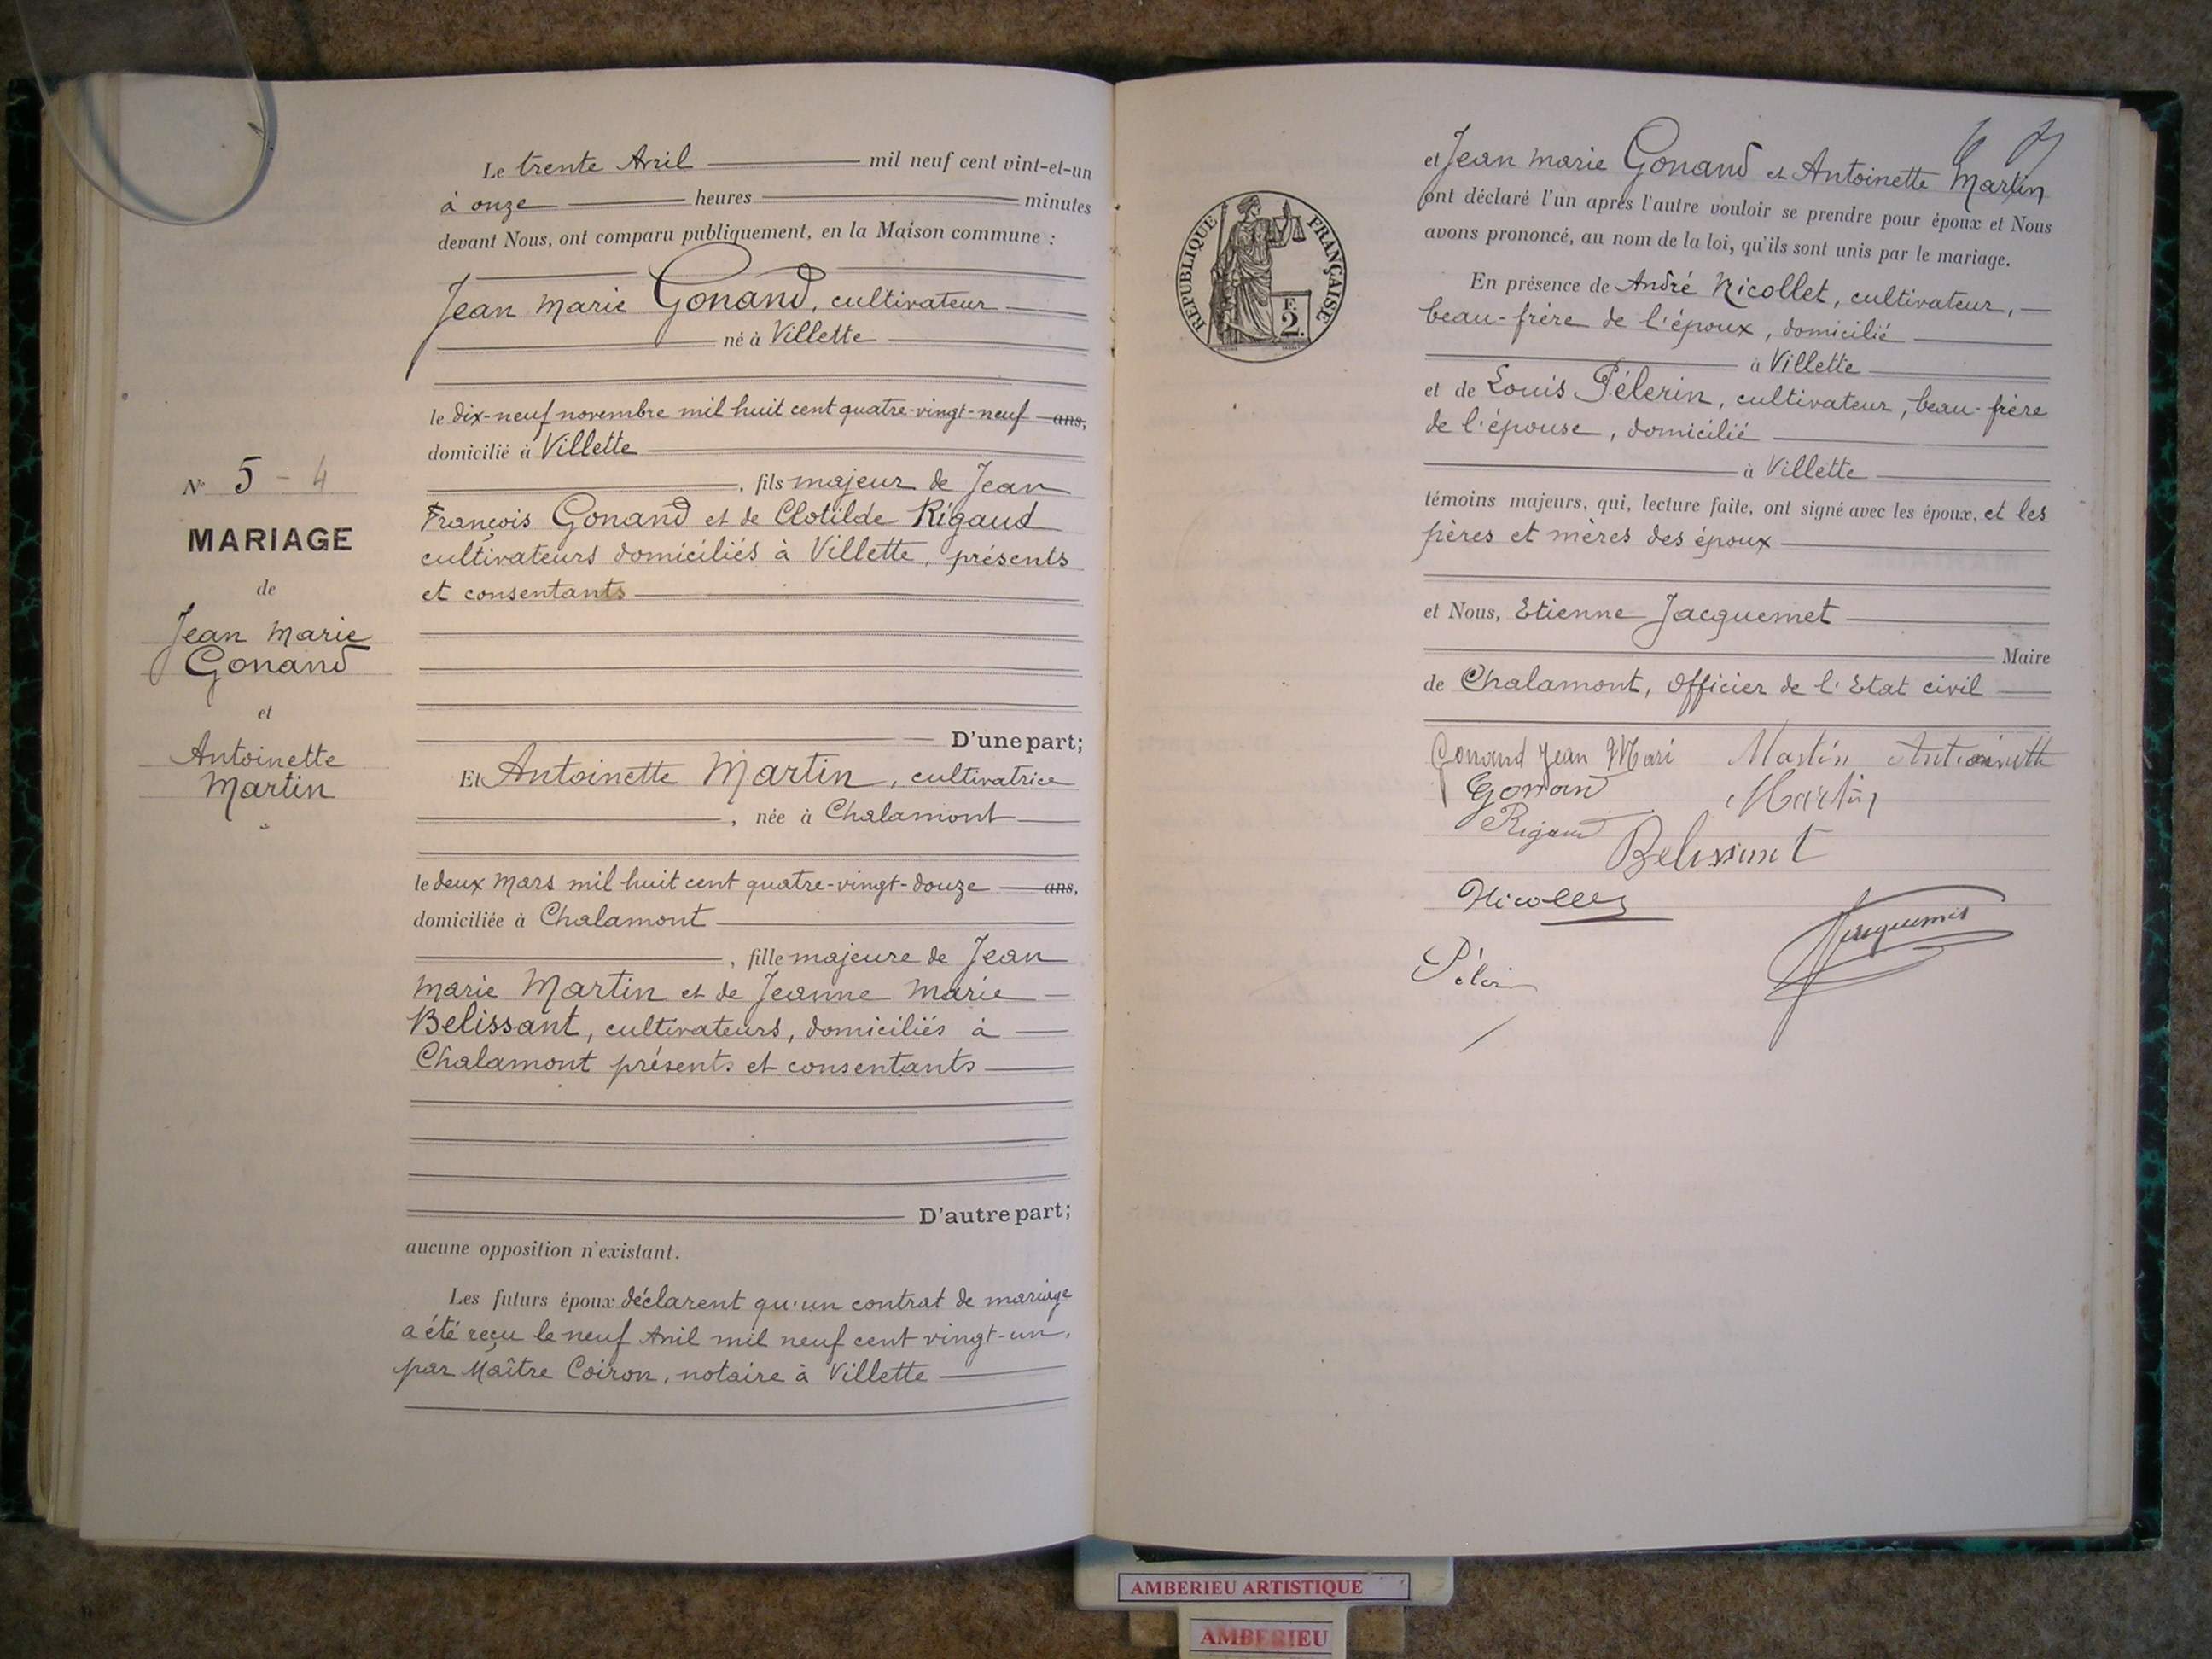 Le trente Avril mil neuf cent vint-et-un
à onze heures minutes
devant Nous, ont comparu publiquement, en la Maison commune :
Jean Marie Gonand, cultivateur
né à Villette
le dix-neuf novembre mil huit cent quatre-vingt-neuf ans,
domicilié à Villette
, fils majeur de Jean
François Gonand et de Clotilde Rigaud
cultivateurs domiciliés à Villette, présents
et consentants
D'une part;
Et Antoinette Martin, cultivatrice
, née à Chalamont
le deux Mars mil huit cent quatre-vingt-douze ans,
domiciliée à Chalamont
, fille majeure de Jean
Marie Martin et de Jeanne Marie
Belissant, cultivateurs, domiciliés à
Chalamont présents et consentants
D'autre part;
aucune opposition n'existant.
Les futurs époux déclarent qu'un contrat de mariage
a été reçu le neuf Avril mil neuf cent vingt-un,
par Maître Coiron, notaire à Villette
N° 5 - 4
MARIAGE
de
Jean Marie
Gonand
et
Antoinette
Martin
RÉPUBLIQUE FRANÇAISE
F.
2.
et Jean Marie Gonand et Antoinette Martin
ont déclaré l'un après l'autre vouloir se prendre pour époux et Nous
avons prononcé, au nom de la loi, qu'ils sont unis par le mariage.
En présence de André Nicollet, cultivateur,
beau-frère de l'époux, domicilié
à Villette
et de Louis Pélerin, cultivateur, beau-frère
de l'épouse, domicilié
à Villette
témoins majeurs, qui, lecture faite, ont signé avec les époux, et les
pères et mères des époux
et Nous, Etienne Jacquemet
Maire
de Chalamont, Officier de l'Etat civil
Gonand Jean Mari Martin Antoinette
Gonand Martin
Rigaud
Belissant
Nicollet
Jacquemet
Pélerin
AMBERIEU ARTISTIQUE
AMBERIEU